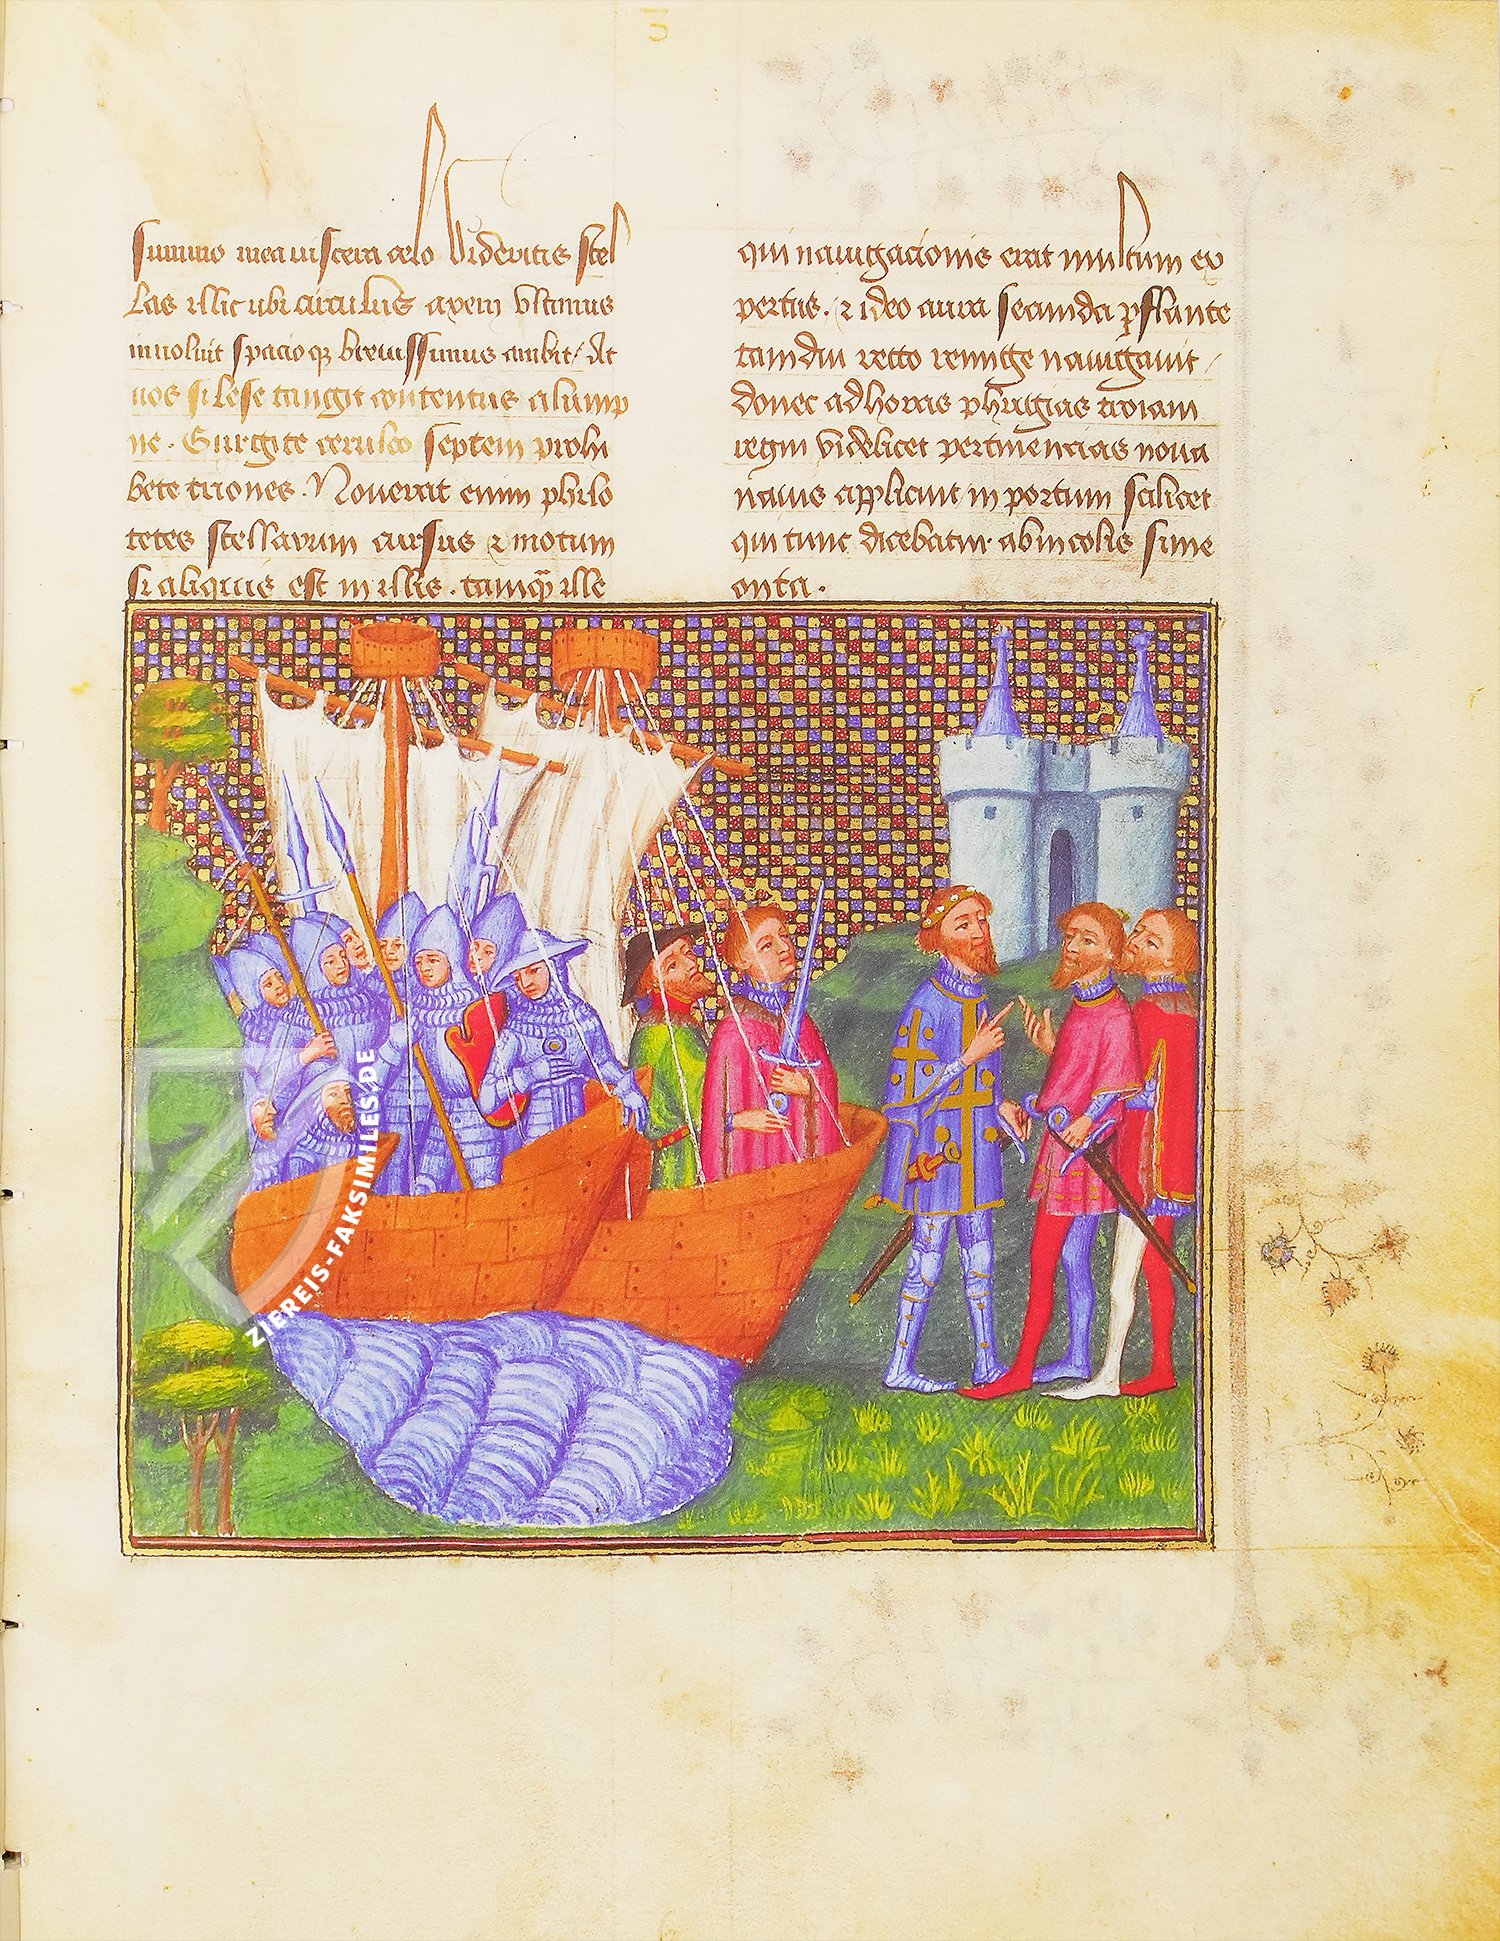 summo mea viscera celo Videritis stel
las illic ubi circulus axem vltimus
inuoluit spacioqz breuissimus ambit / At
nos si lese tangit contentus alump
ne . Gurgite ceruleo septem prohi
bete triones . Nouerat enim philo
tetes stellarum cursus ⁊ motum
si aliquis est in illis . tamq̄ ille
qui nauigacionis erat multum ex
pertus . ⁊ ideo aura secunda ꝑflante
tamdiu recto remige nauigauit /
donec ad horas phrigias troiam
regni videlicet pertinencias noua
nauis applicuit in portum scilicet
qui tunc dicebatur ab incolis sime
onta .
ZIEREIS-FAKSIMILES.DE